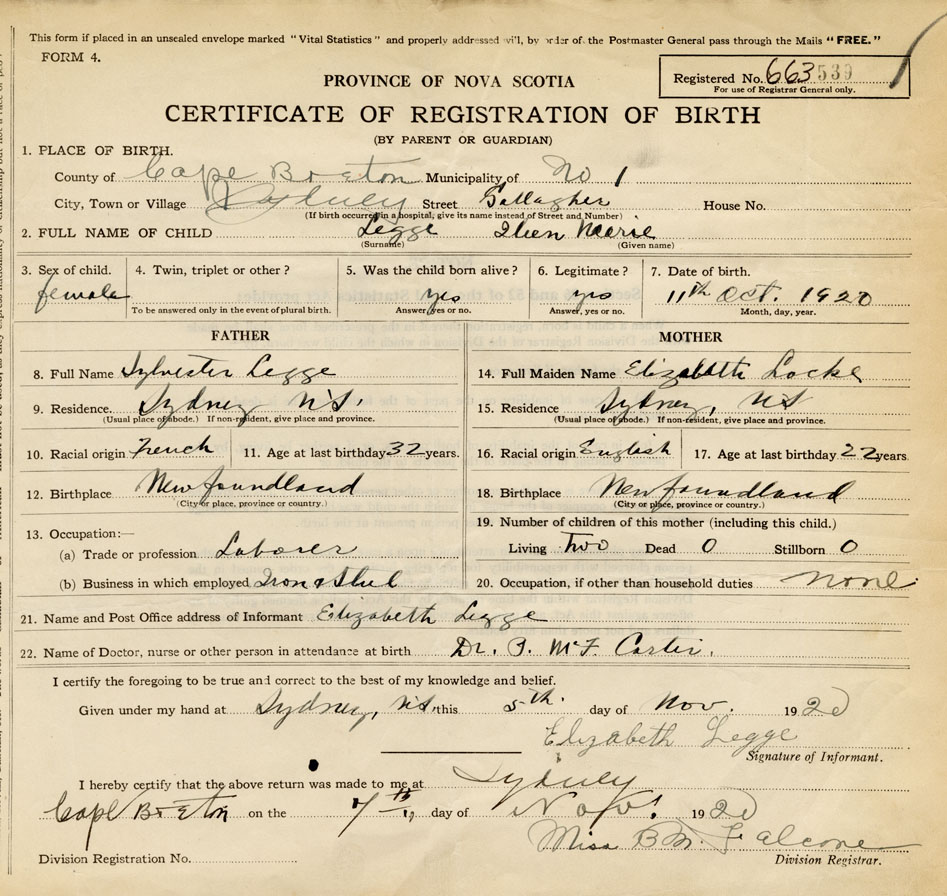 This form if placed in an unsealed envelope marked "Vital Statistics" and properly addressed will, by order of the Postmaster General pass through the Mails "FREE."
FORM 4.
Registered No. 663 539
For use of Registrar General only.
PROVINCE OF NOVA SCOTIA
CERTIFICATE OF REGISTRATION OF BIRTH
(BY PARENT OR GUARDIAN)
1. PLACE OF BIRTH.
County of Cape Breton Municipality of No 1
City, Town or Village Sydney Street Gallagher House No.
(If birth occurred in a hospital, give its name instead of Street and Number)
2. FULL NAME OF CHILD Legge Ilien Marie
(Surname) (Given name)
3. Sex of child. 4. Twin, triplet or other? 5. Was the child born alive? 6. Legitimate? 7. Date of birth.
female yes yes 11th Oct. 1920
To be answered only in the event of plural birth. Answer, yes or no. Answer, yes or no. Month, day, year.
FATHER
8. Full Name Sylvester Legge
9. Residence. Sydney N.S.
(Usual place of abode.) If non-resident, give place and province.
10. Racial origin French 11. Age at last birthday 32 years.
12. Birthplace Newfoundland
(City or place, province or country.)
13. Occupation:—
(a) Trade or profession Laborer
(b) Business in which employed Iron & Steel
MOTHER
14. Full Maiden Name Elizabeth Locke
15. Residence Sydney, NS
(Usual place of abode.) If non-resident, give place and province.
16. Racial origin English 17. Age at last birthday 22 years.
18. Birthplace Newfoundland
(City or place, province or country.)
19. Number of children of this mother (including this child.)
Living Two Dead 0 Stillborn 0
20. Occupation, if other than household duties none
21. Name and Post Office address of Informant Elizabeth Legge
22. Name of Doctor, nurse or other person in attendance at birth Dr. McF.
I certify the foregoing to be true and correct to the best of my knowledge and belief.
Given under my hand at Sydney, N.S. this 5th. day of Nov. 1920
Elizabeth Legge
Signature of Informant.
I hereby certify that the above return was made to me at Sydney
Cape Breton on the 7th day of Nov. 1920
Miss B.M. Falcone
Division Registration No.
Division Registrar.